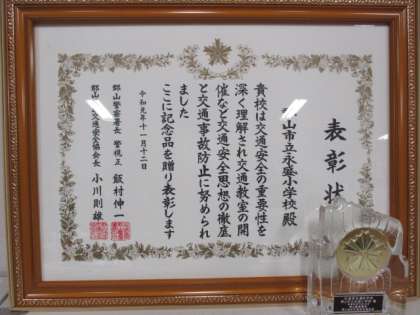 表彰状
山市立永盛小学校殿
貴校は交通安全の重要性を
深く理解され交通教室の開
催など交通安全思想の徹底
と交通事故防止に努められ
ました
ここに記念品を贈り表彰します
令和元年十一月十二日
郡山警察署長 警視正 飯村伸一
郡山 交通安全協会長 小川則雄